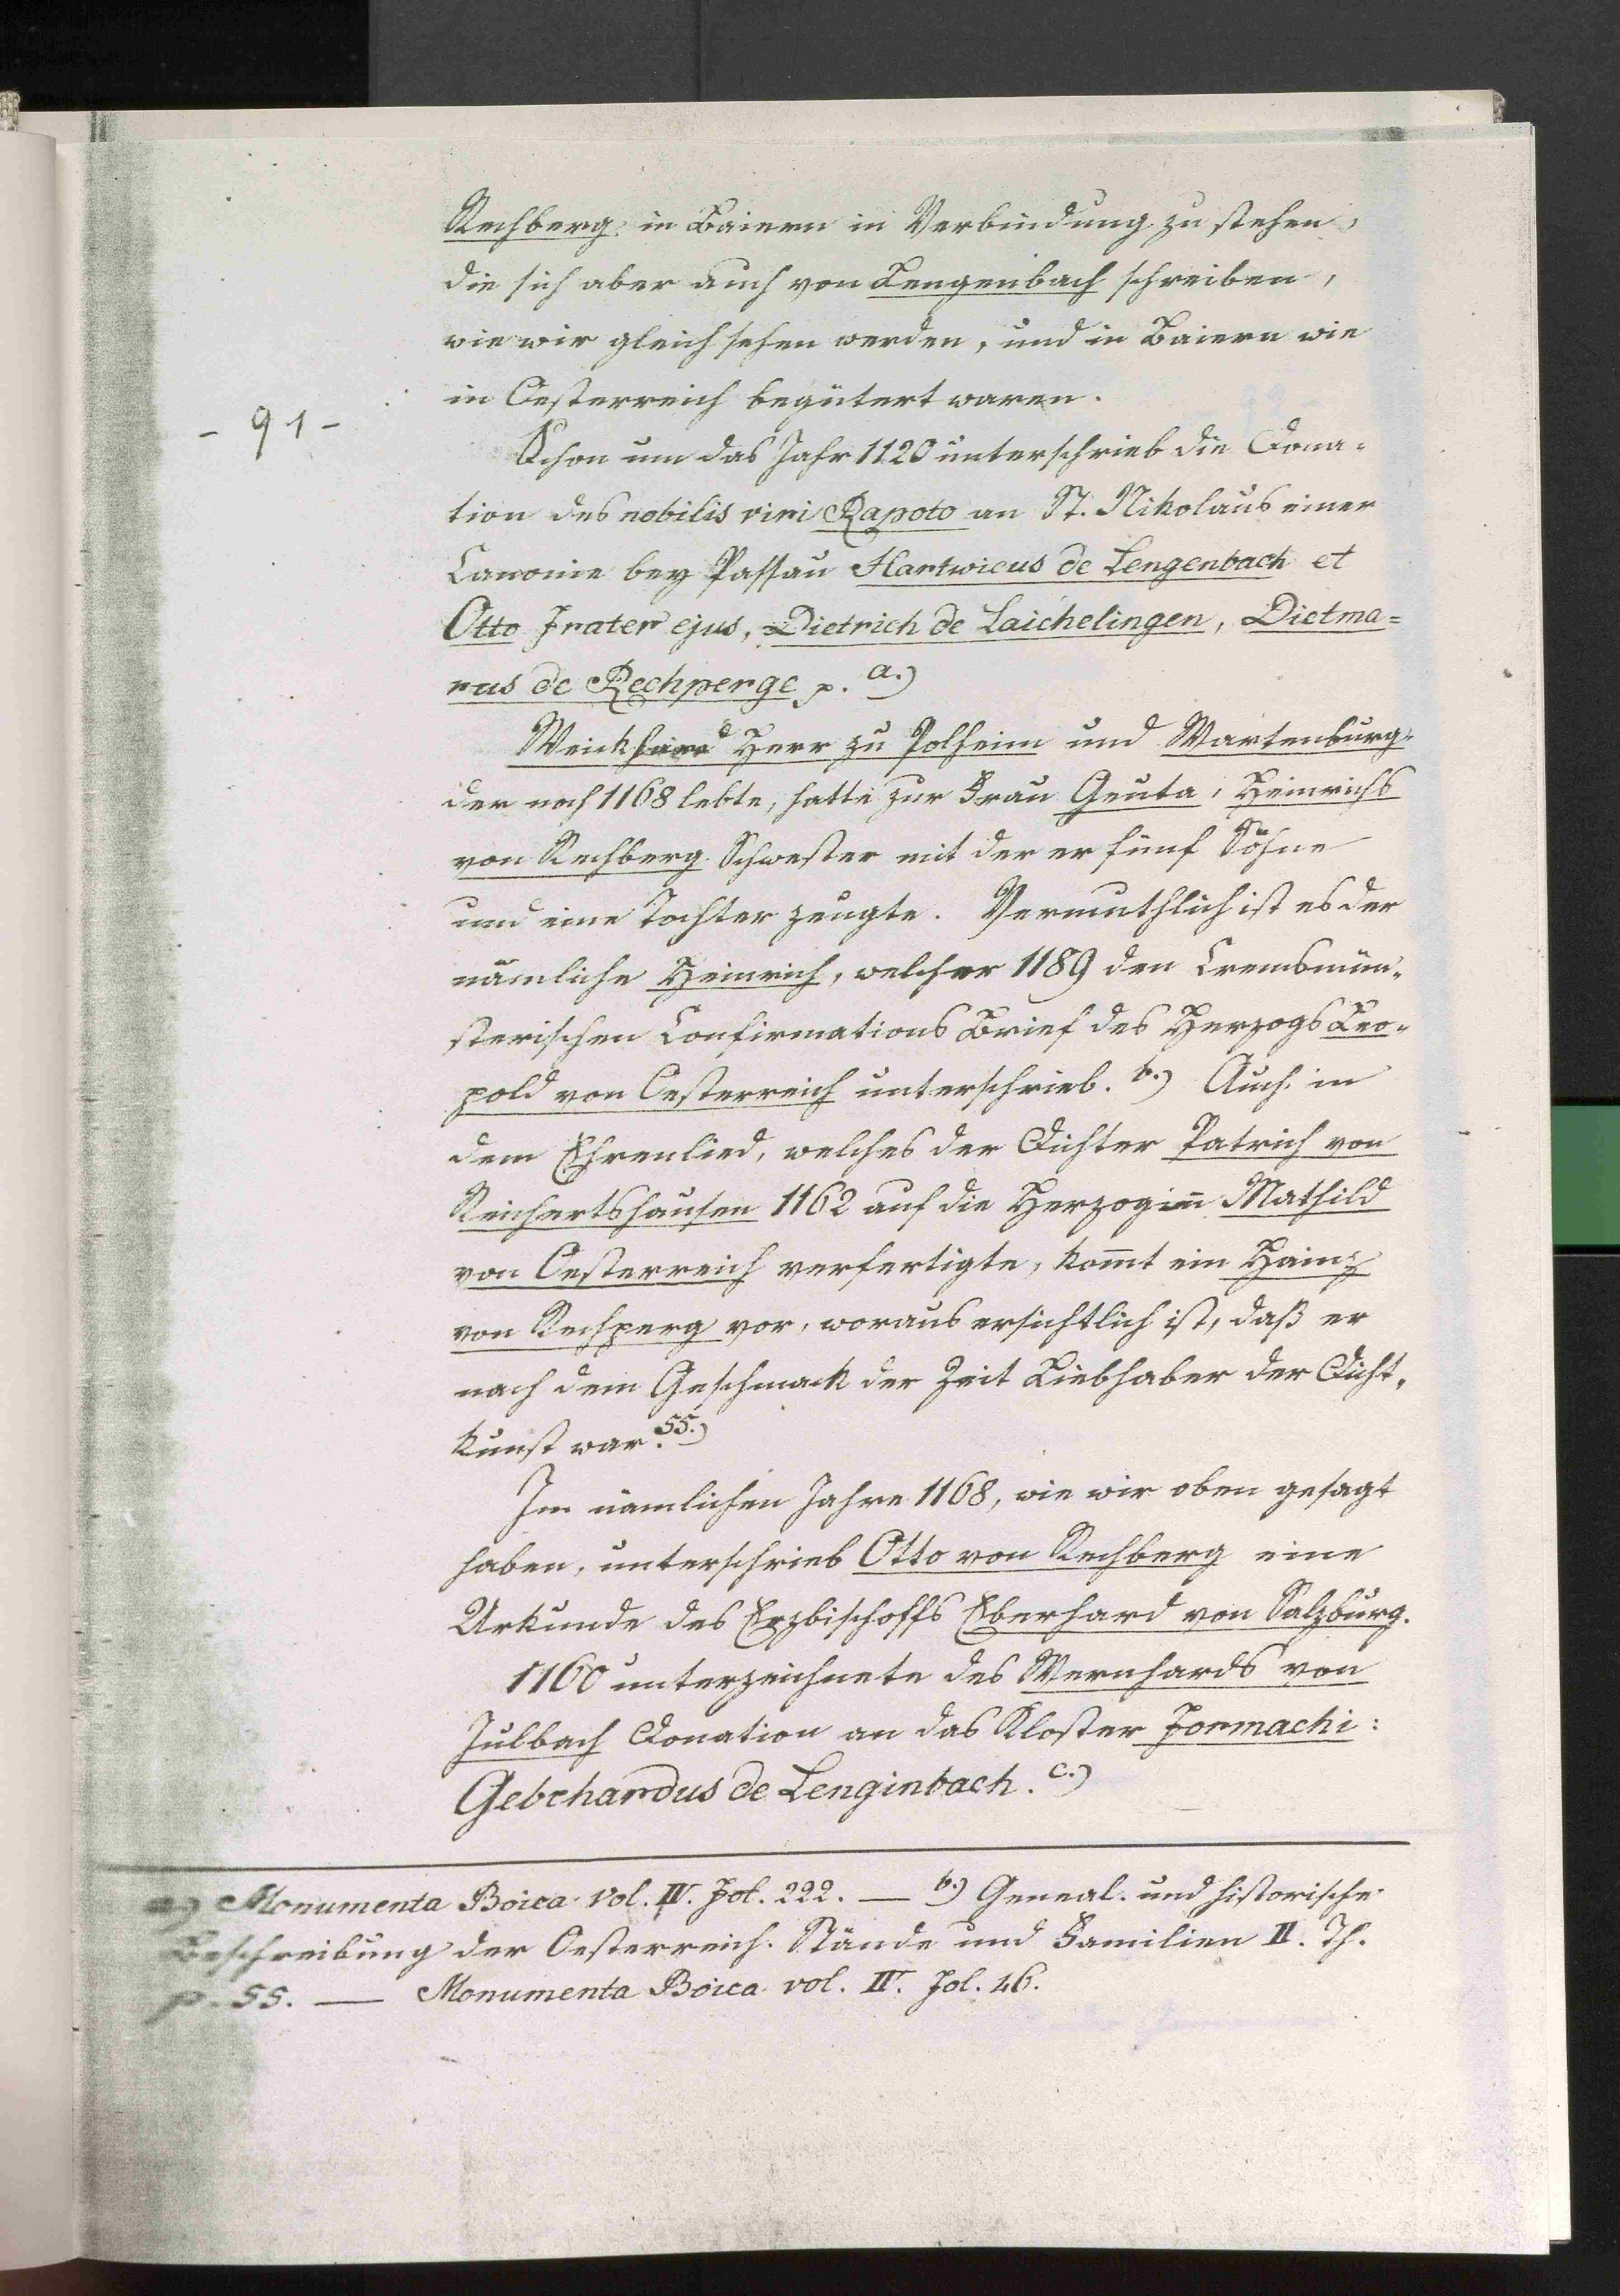 Rechberg in Baiern in Verbindung zu stehen,
die sich aber auch von Lengenbach schreiben,
wie wir gleich sehen werden, und in Baiern wie
in Oesterreich begütert waren.
- 91 -
Schon um das Jahr 1120 unterschrieb die Dona-
tion des nobilis viri Rapoto an St. Nikolaus einer
Canonie bey Passau Hartwicus de Lengenbach et
Otto Frater ejus, Dietrich de Laichelingen, Dietma=
rus de Rechperge p. a.)
Weickhard Herr zu Polheim und Wartenburg,
der noch 1168 lebte, hatte zur Frau Geuta, Heinrichs
von Rechberg Schwester mit der er fünf Söhne
und eine Tochter zeugte. Vermuthlich ist es der
nämliche Heinrich, welcher 1189 den Cremsmün-
sterischen Confirmations Brief des Herzogs Leo-
pold von Oesterreich unterschrieb. b.) Auch in
dem Ehrenlied, welches der Dichter Patrich von
Reichertshausen 1162 auf die Herzogin̄ Mathild
von Oesterreich verfertigte, kom̄t ein Hainz
von Rechperg vor, woraus ersichtlich ist, daß er
nach dem Geschmack der Zeit Liebhaber der Dicht-
kunst war. 55.)
Im nämlichen Jahre 1168, wie wir oben gesagt
haben, unterschrieb Otto von Rechberg eine
Urkunde des Erzbischoffs Eberhard von Salzburg.
1160 unterzeichnete des Wernhards von
Julbach Donation an das Kloster Formachi:
Gebehardus de Lenginbach. c.)
a.) Monumenta Boica vol. IV. Fol. 222. — b.) Geneal. und historische
Beschreibung der Oesterreich. Stände und Familien II. Th.
p. 55. — Monumenta Boica vol. IV. Fol. 46.